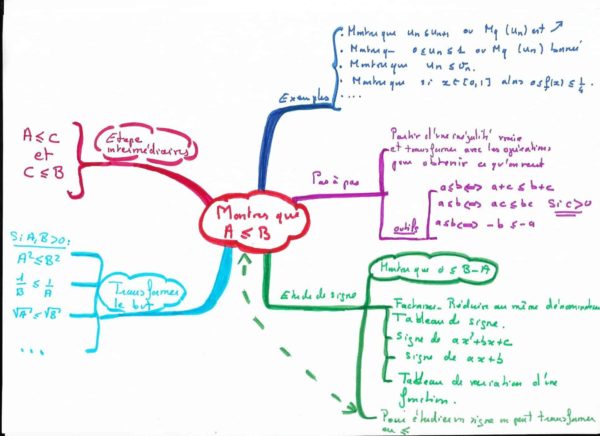 Montrer que
A ≤ B
Exemples
. Montrer que un ≤ un+1 ou Mq (un) est ↗
. Montrer que 0 ≤ un ≤ 1 ou Mq (un) bornée
. Montrer que un ≤ vn.
. Montrer que si x ∈ [0,1] alors 0 ≤ f(x) ≤ 1/4.
. ...
Pas à pas
Partir d'une inégalité vraie
et transformer avec les opérations
pour obtenir ce qu'on veut
outils
a≤b ⟺ a+c ≤ b+c
a≤b ⟺ ac ≤ bc Si c>0
a≤b ⟺ -b ≤ -a
Etude de signe
Montrer que 0 ≤ B-A
Factoriser. Réduire au même dénominateur
Tableau de signe.
Signe de ax²+bx+c
Signe de ax+b
Tableau de variation d'une
fonction.
Pour étudier un signe on peut transformer
en ≤
Etape
intermédiaires
A ≤ C
et
C ≤ B
Transformer
le but
Si A,B>0:
A² ≤ B²
1/B ≤ 1/A
√A ≤ √B
...